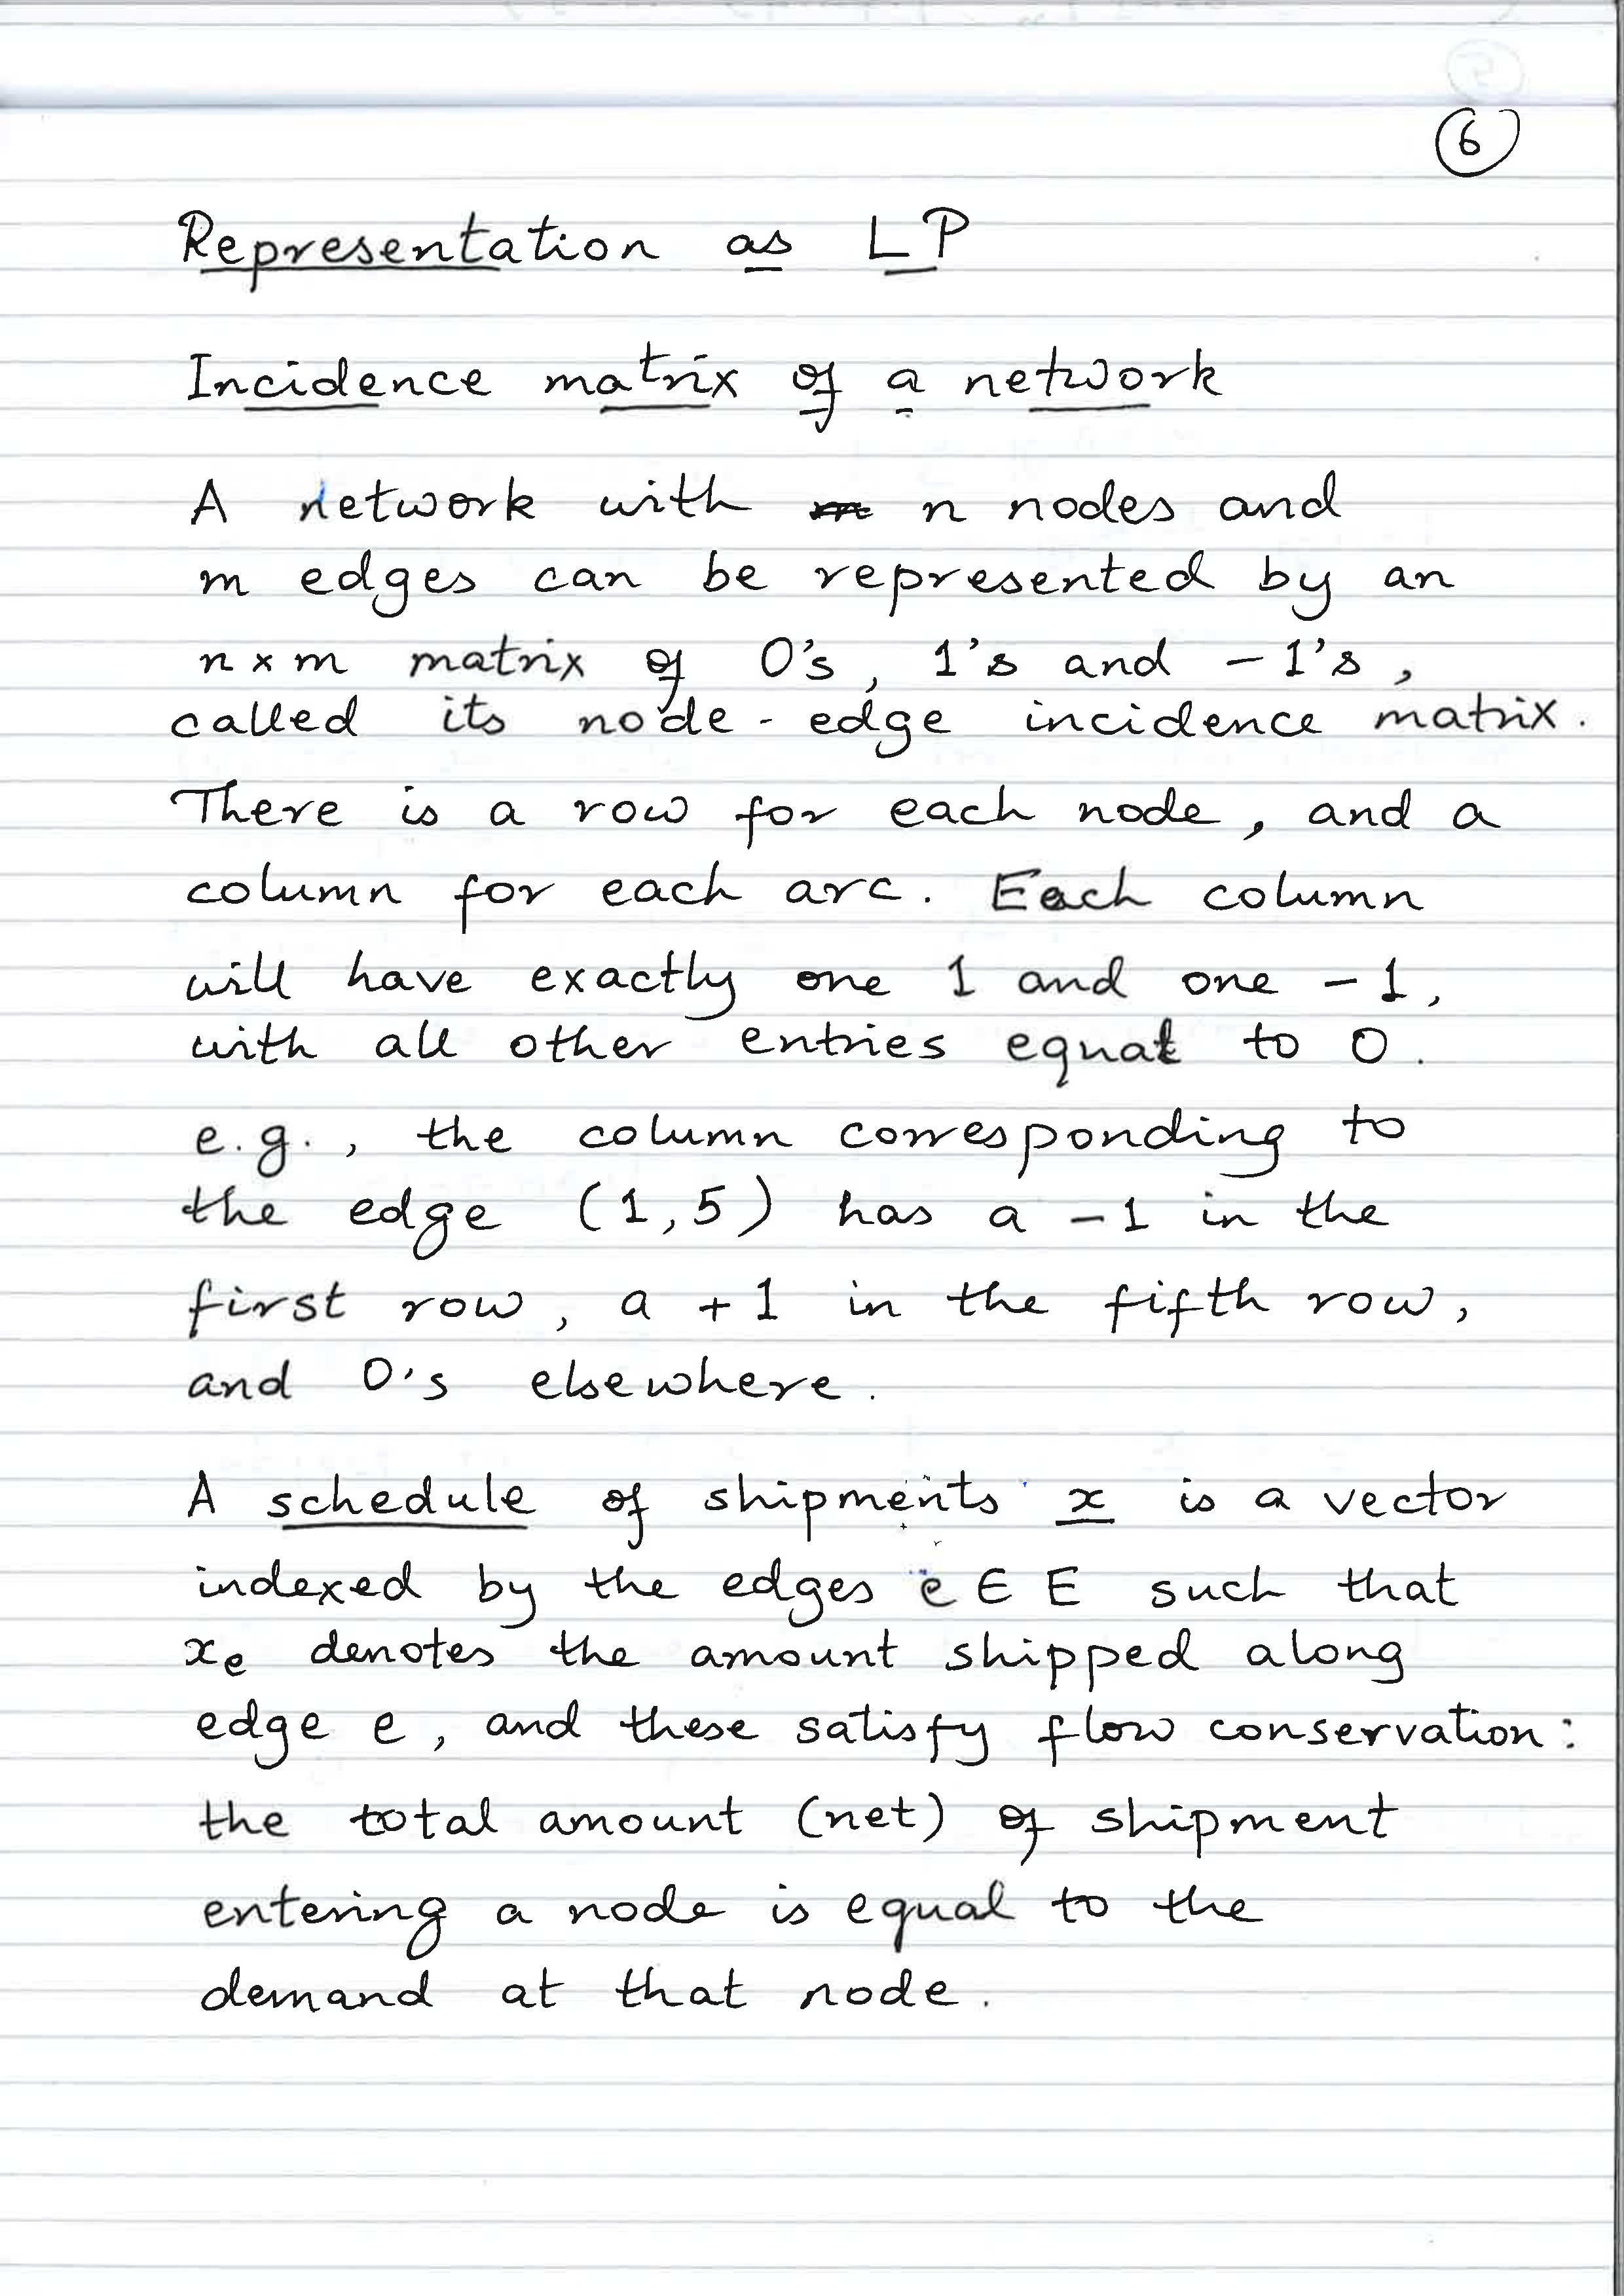 6
Representation as LP
Incidence matrix of a network
A network with n nodes and
m edges can be represented by an
n x m matrix of 0's, 1's and -1's,
called its node-edge incidence matrix.
There is a row for each node, and a
column for each arc. Each column
will have exactly one 1 and one -1,
with all other entries equal to 0.
e.g., the column corresponding to
the edge (1,5) has a -1 in the
first row, a +1 in the fifth row,
and 0's elsewhere.
A schedule of shipments x is a vector
indexed by the edges e ∈ E such that
xₑ denotes the amount shipped along
edge e, and these satisfy flow conservation:
the total amount (net) of shipment
entering a node is equal to the
demand at that node.